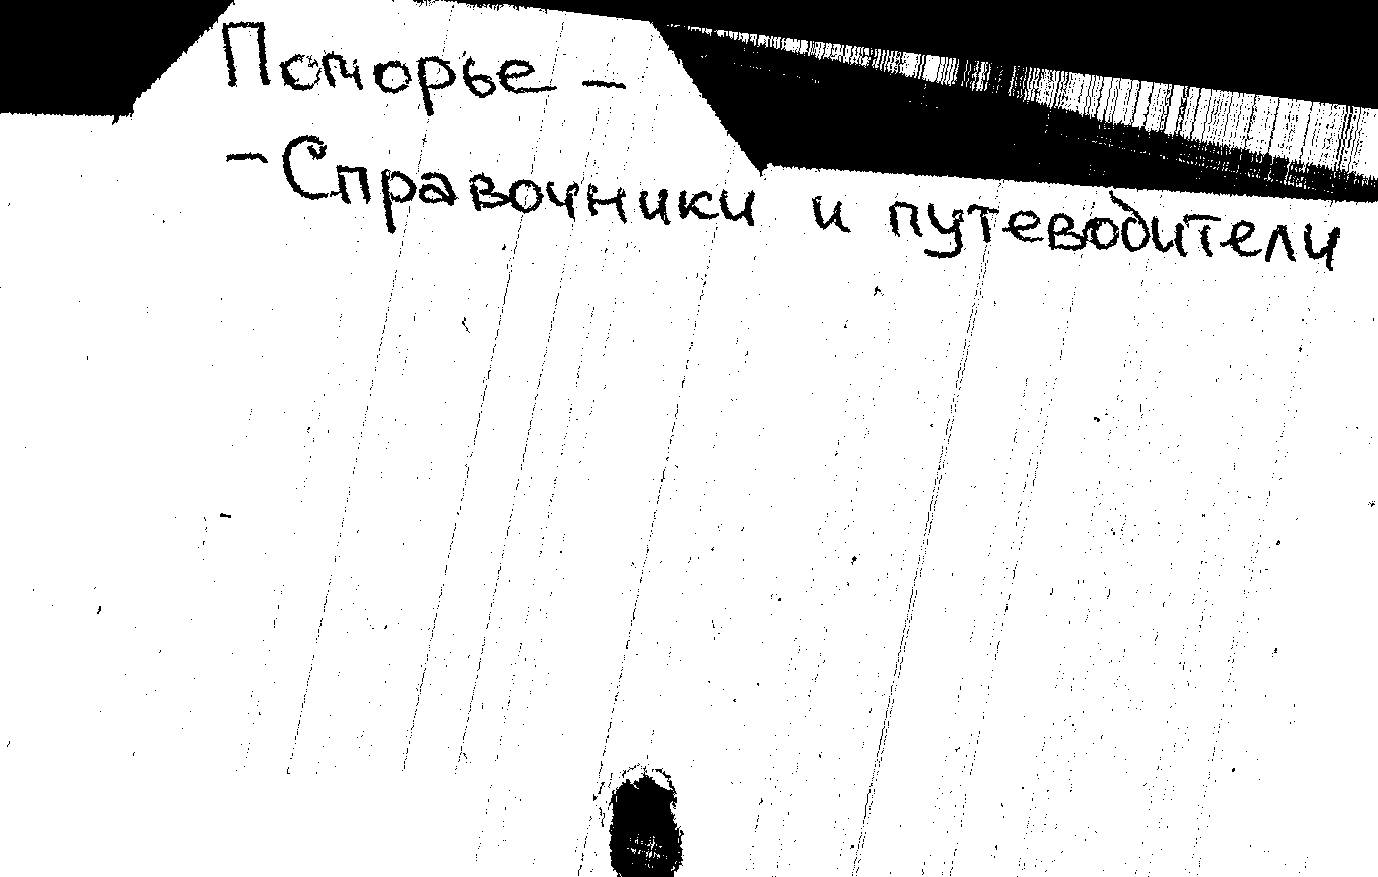 Поморье –
– Справочники и путеводители